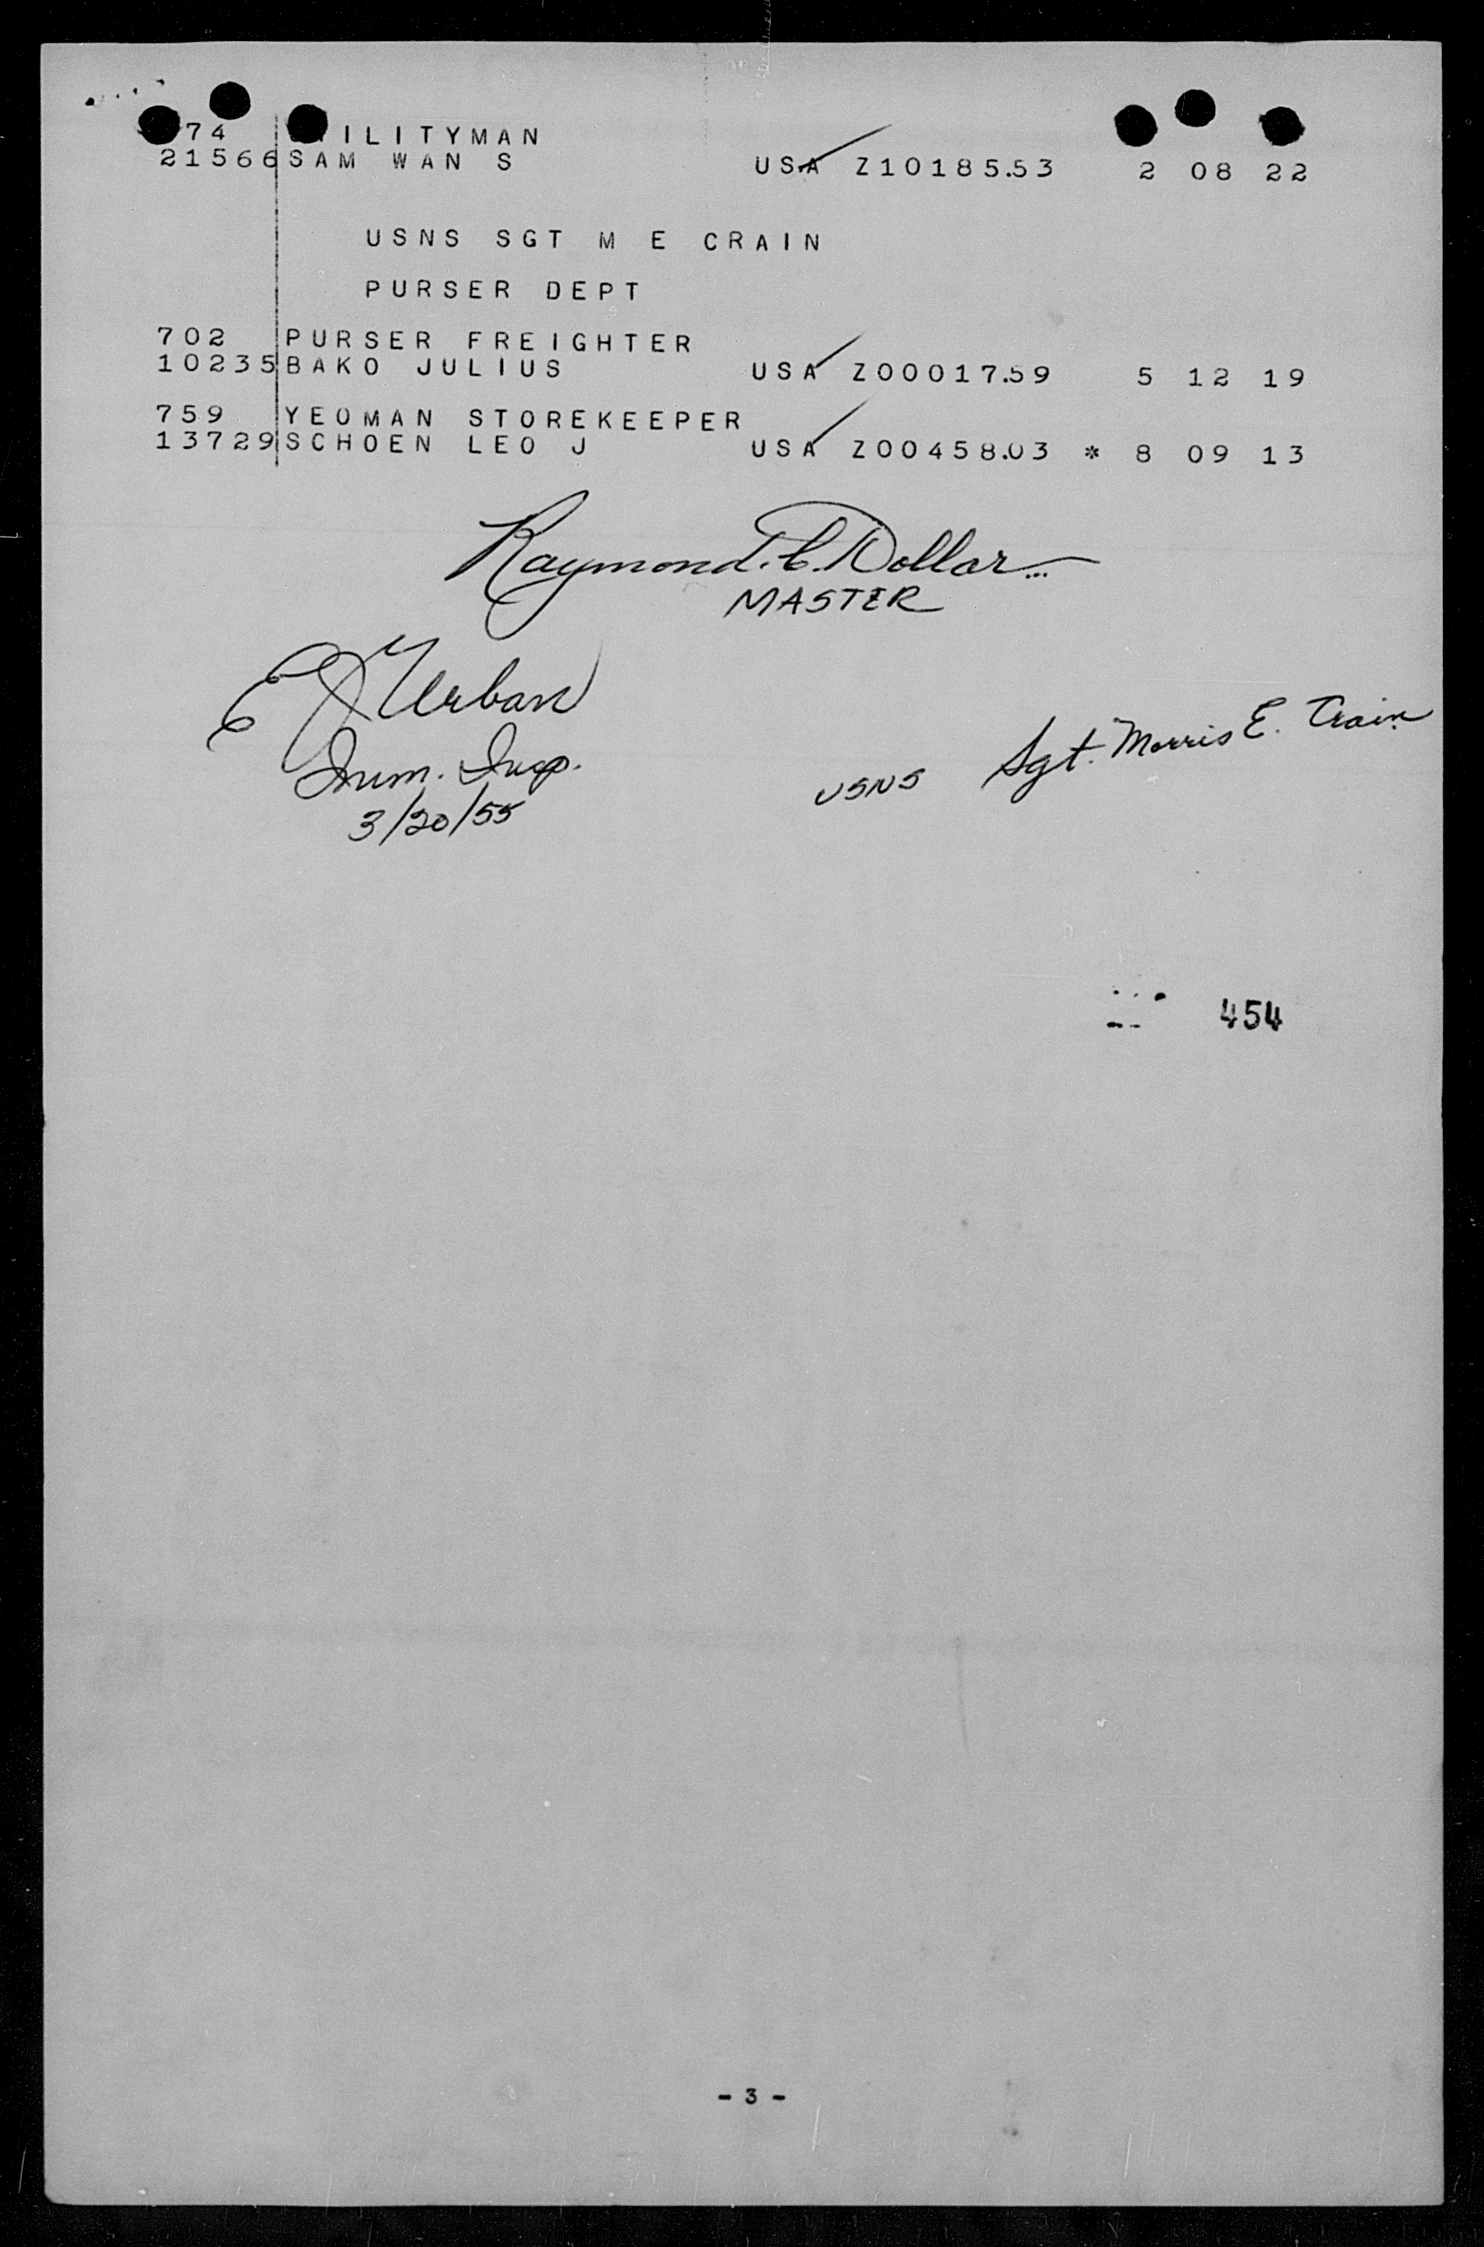 74 ILITYMAN
21566 SAM WAN S USA Z10185.53 2 08 22
USNS SGT M E CRAIN
PURSER DEPT
702 PURSER FREIGHTER
10235 BAKO JULIUS USA Z00017.59 5 12 19
759 YEOMAN STOREKEEPER
13729 SCHOEN LEO J USA Z00458.03 * 8 09 13
Raymond. C. Dollar
MASTER
E J Urban
Imm. Insp.
3/20/55
USNS Sgt. Morris E. Crain
454
- 3 -